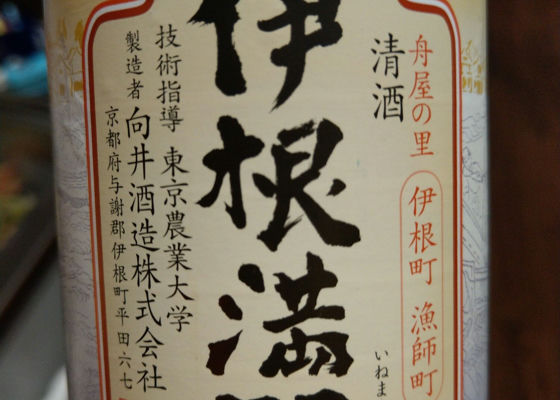 舟屋の里
伊根町 漁師町
清酒
伊根満
いねま
技術指導 東京農業大学
製造者 向井酒造株式会社
京都府与謝郡伊根町平田六七